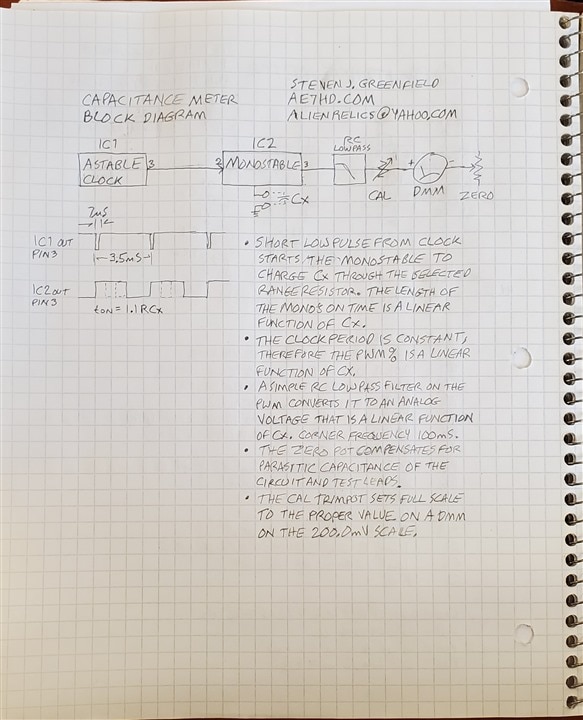 STEVEN J. GREENFIELD
AE7HD.COM
ALIENRELICS@YAHOO.COM
CAPACITANCE METER
BLOCK DIAGRAM
IC1
ASTABLE
CLOCK
3
2
IC2
MONOSTABLE
3
CX
RC
LOWPASS
CAL
+
-
DMM
ZERO
IC1 OUT
PIN3
3.5mS
IC2 OUT
PIN3
tON = 1.1RCX
• SHORT LOW PULSE FROM CLOCK
STARTS THE MONOSTABLE TO
CHARGE CX THROUGH THE SELECTED
RANGE RESISTOR. THE LENGTH OF
THE MONO'S ON TIME IS A LINEAR
FUNCTION OF CX.
• THE CLOCK PERIOD IS CONSTANT,
THEREFORE THE PWM% IS A LINEAR
FUNCTION OF CX.
• A SIMPLE RC LOWPASS FILTER ON THE
PWM CONVERTS IT TO AN ANALOG
VOLTAGE THAT IS A LINEAR FUNCTION
OF CX. CORNER FREQUENCY 100mS.
• THE ZERO POT COMPENSATES FOR
PARASITIC CAPACITANCE OF THE
CIRCUIT AND TEST LEADS.
• THE CAL TRIMPOT SETS FULL SCALE
TO THE PROPER VALUE ON A DMM
ON THE 200.0mV SCALE.